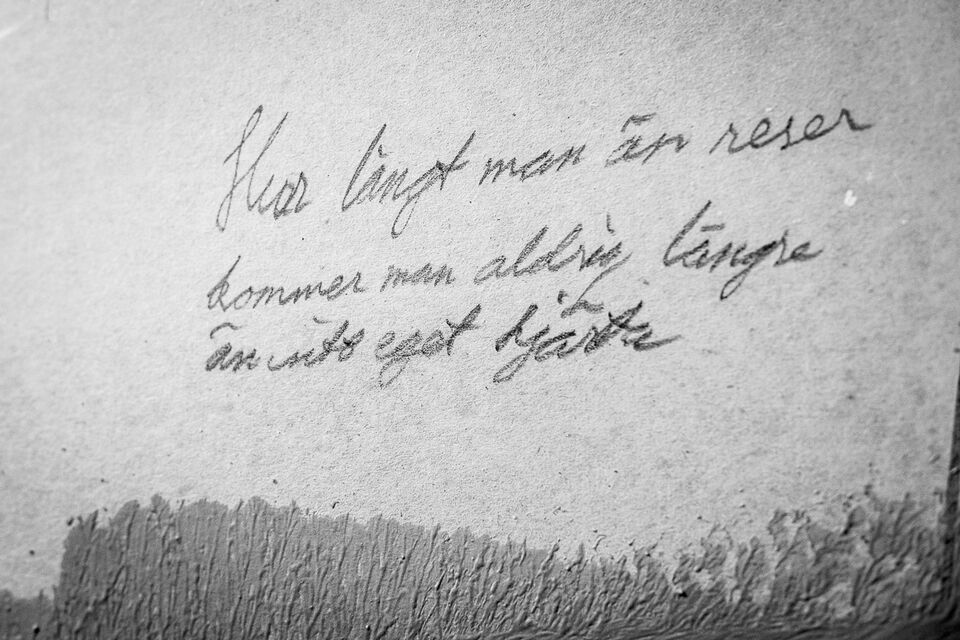 Hur långt man än reser
kommer man aldrig längre
än sitt eget hjärta